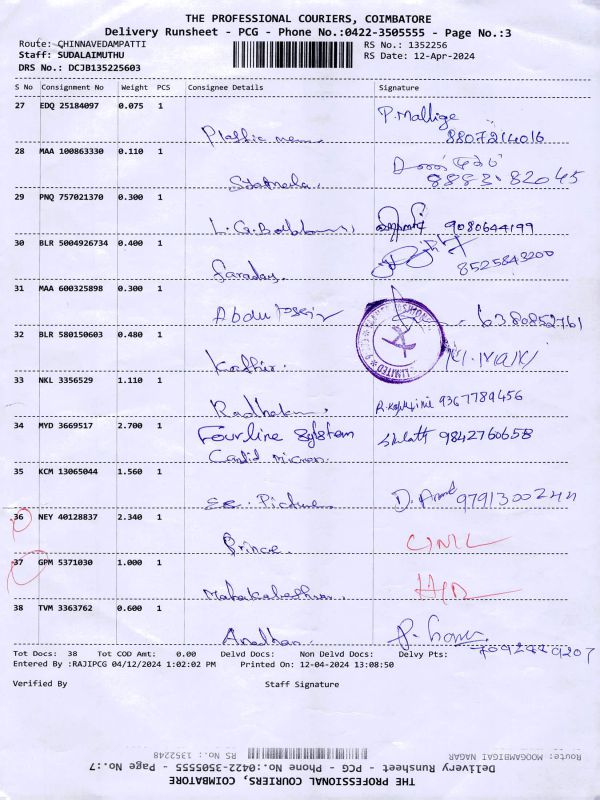 THE PROFESSIONAL COURIERS, COIMBATORE
Delivery Runsheet - PCG - Phone No.:0422-3505555 - Page No.:3
Route: CHINNAVEDAMPATTI
RS No.: 1352256
Staff: SUDALAIMUTHU
RS Date: 12-Apr-2024
DRS No.: DCJB135225603
S No Consignment No Weight PCS Consignee Details Signature
27 EDQ 25184097 0.075 1
P. Mallige
8807214016
28 MAA 100863330 0.110 1
88838 82045
29 PNQ 757021370 0.300 1
9080644199
30 BLR 5004926734 0.400 1
Faraday.
8525843200
31 MAA 600325898 0.300 1
Abdul
6380852761
32 BLR 580150603 0.480 1
LIMITED
33 NKL 3356529 1.110 1
9367789456
34 MYD 3669517 2.700 1
Fourline System
9842760658
Candid
35 KCM 13065044 1.560 1
Picture
9791300244
36 NEY 40128837 2.340 1
Prince
37 GPM 5371030 1.000 1
38 TVM 3363762 0.600 1
Anadhan
Tot Docs: 38 Tot COD Amt: 0.00 Delvd Docs: Non Delvd Docs: Delvy Pts:
Entered By :RAJIPCG 04/12/2024 1:02:02 PM Printed On: 12-04-2024 13:08:50
Verified By Staff Signature
Route: MOOGAMBIGAI NAGAR
RS No.: 1352248
Delivery Runsheet - PCG - Phone No.:0422-3505555 - Page No.:7
THE PROFESSIONAL COURIERS, COIMBATORE